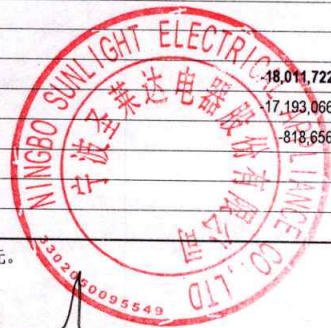 NINGBO SUNLIGHT ELECTRICAL APPLIANCE CO.,LTD
宁波圣莱达电器股份有限公司
3302050095549
-18,011,722
-17,193,066
-818,656